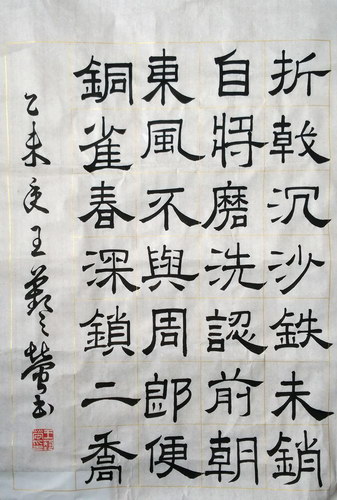 折戟沉沙鉄未銷
自將磨洗認前朝
東風不與周郎便
銅雀春深鎖二喬
乙未夏王
書